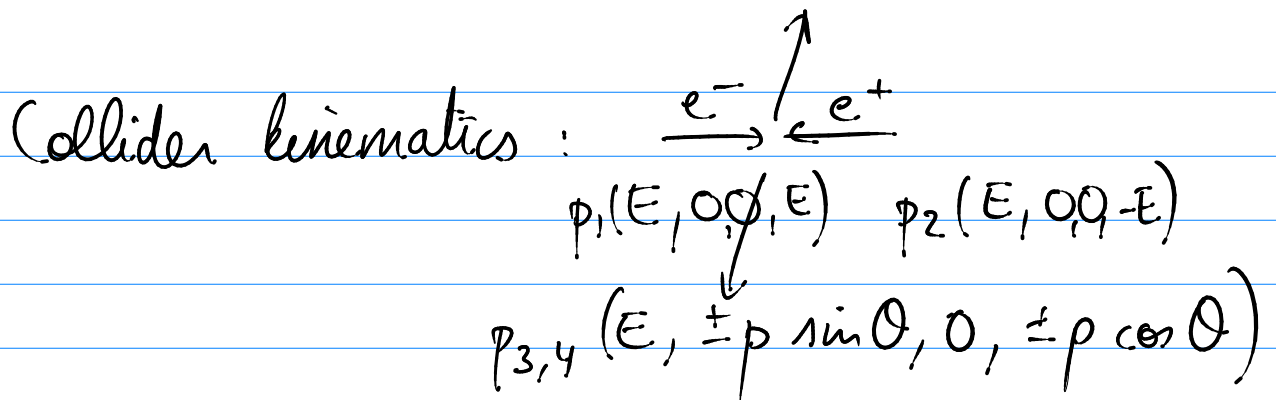 Collider kinematics : e⁻ e⁺
p₁(E, 0,0, E) p₂(E, 0,0,-E)
p₃,₄ (E, ±p sinθ, 0, ±p cosθ)